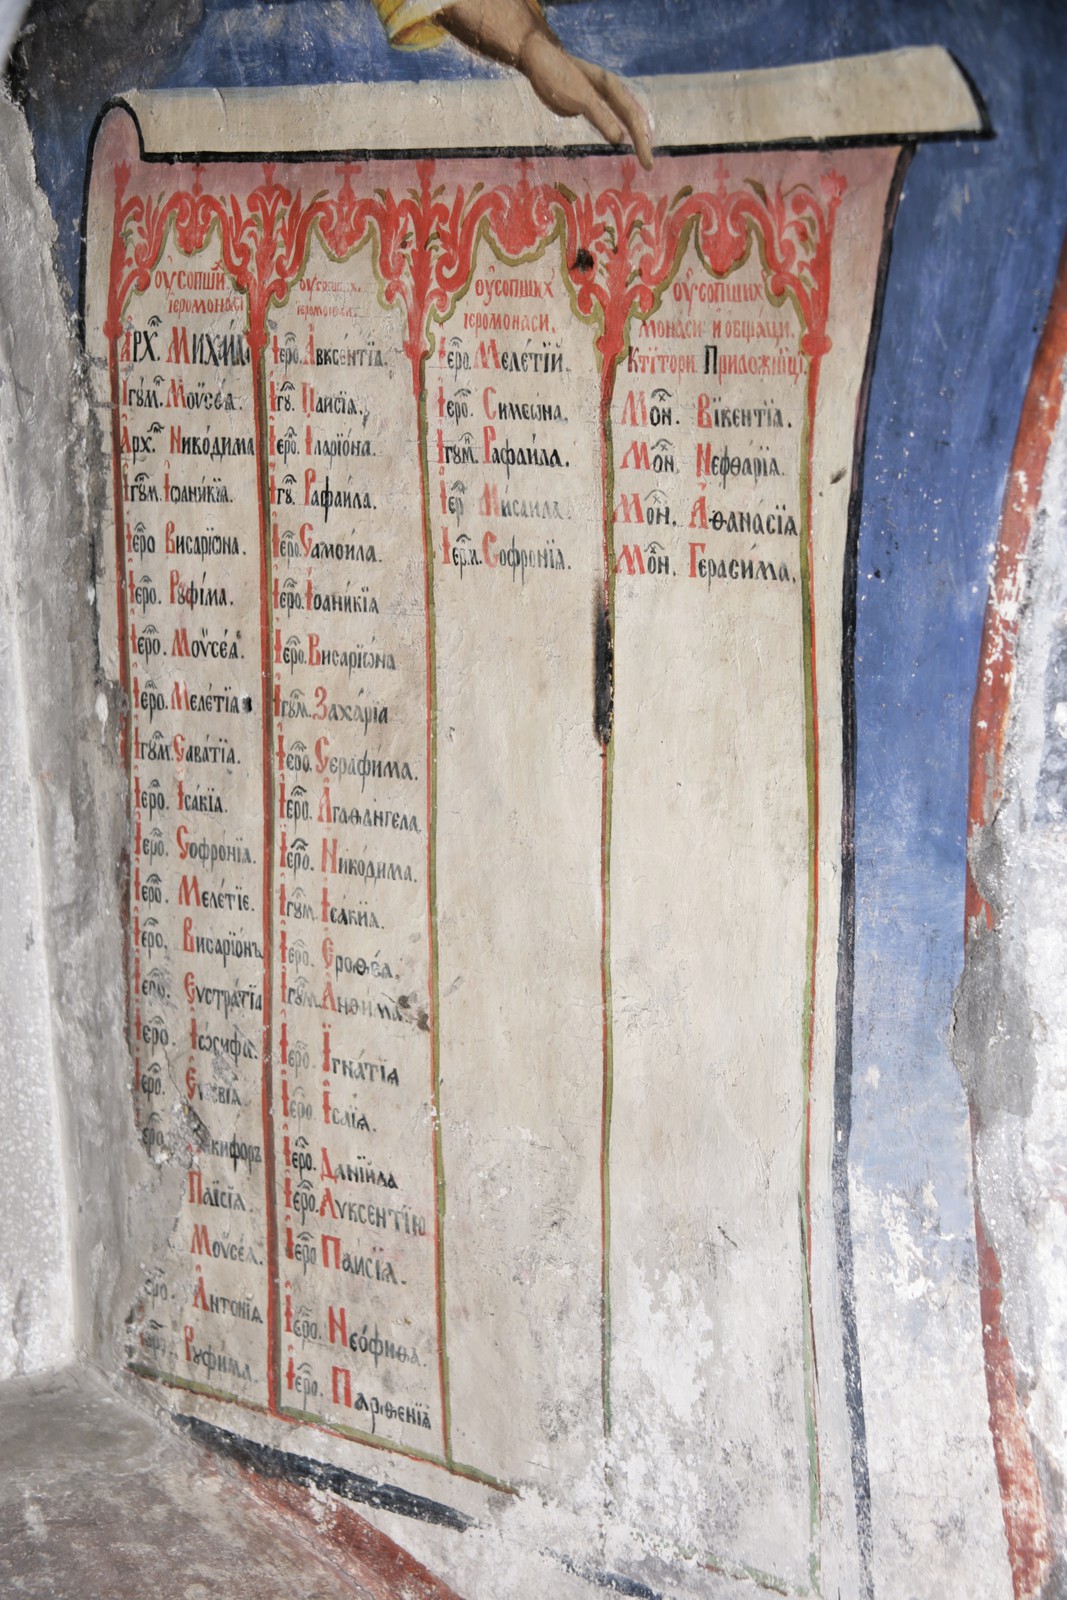 оусопших
їеромонаси
Арх҃. Михаила
Ігꙋм. Моѷсеа.
Арх҃. Никодима
Ігꙋм. Іѡаникїа.
Їеро Висарїѡна.
Їеро. Рꙋфіма.
Їеро. Моѷсеа.
Їеро. Мелетїа
Ігꙋм. Саватїа.
Їеро. Ісакїа.
Їеро. Софронїа.
Їеро. Мелетїе.
Їеро. Висарїонъ
Їеро. Еѵстратїа
Їеро. Іѡсифа.
Їеро.
кифоръ
Паїсїа.
Моѷсеа.
Антонїа
Рꙋфима.
їеромонаси.
Їеро. Авксентїа.
Ігꙋ. Паисїа.
Їеро. Іларїона.
Ігꙋ. Рафаила.
Їеро. Самоила.
Їеро. Іоаникїа
Їеро. Висарїѡна
Ігꙋм. Захарїа
Їеро. Серафима.
Їеро. Агаѳангела.
Їеро. Никодима.
Ігꙋм. Ісакїа.
Їеро. Ероѳеа.
Ігꙋм. Анѳима.
Їеро. Ігнатїа
Їеро. Ісаїа.
Їеро. Данїила
Їеро. Аѵксентїю
Їеро Паисїа.
Їеро. Неофиѳа.
Їеро. Парѳенїа
оусопших
їеромонаси.
Їеро. Мелетїй.
Їеро. Симеѡна.
Ігꙋм. Рафаила.
Їер Мисаила.
Їер.м. Софронїа.
оусопших
монаси и общаци.
Ктітори Приложници.
Мон. Вїкентїа.
Мон. Нефѳарїа.
Мон. Аѳанасїа
Мон. Герасима.